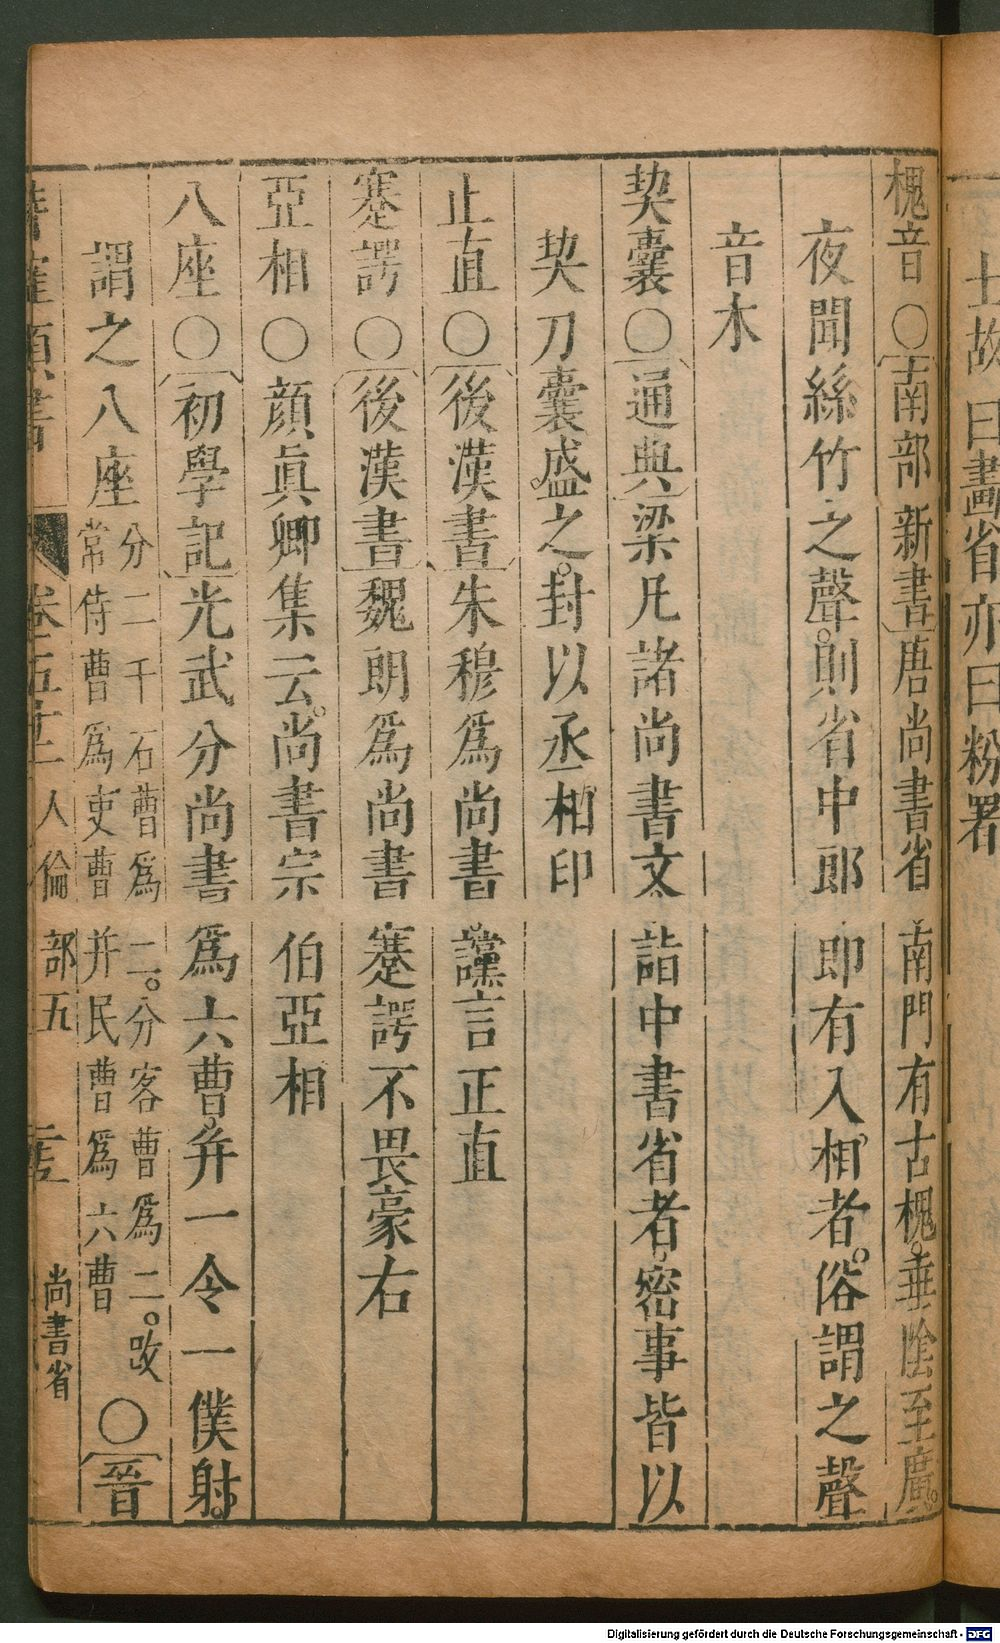 士故曰畫省亦曰粉署
槐音○南部新書唐尚書省南門有古槐。垂陰至廣。
夜聞絲竹之聲。則省中郎即有入相者。俗謂之聲
音木
契囊○通典梁凡諸尚書文詣中書省者密事皆以
契刀囊盛之。封以丞相印
止直○後漢書朱穆爲尚書讜言正直
蹇諤○後漢書魏朗爲尚書蹇諤不畏豪右
亞相○顔眞卿集云。尚書宗伯亞相
八座○初學記光武分尚書爲六曹并一令一僕射。
謂之八座分二千石曹爲二。分客曹爲二。改常侍曹爲吏曹并民曹爲六曹○晉
類書 人倫部五 尚書省
Digitalisierung gefördert durch die Deutsche Forschungsgemeinschaft - DFG